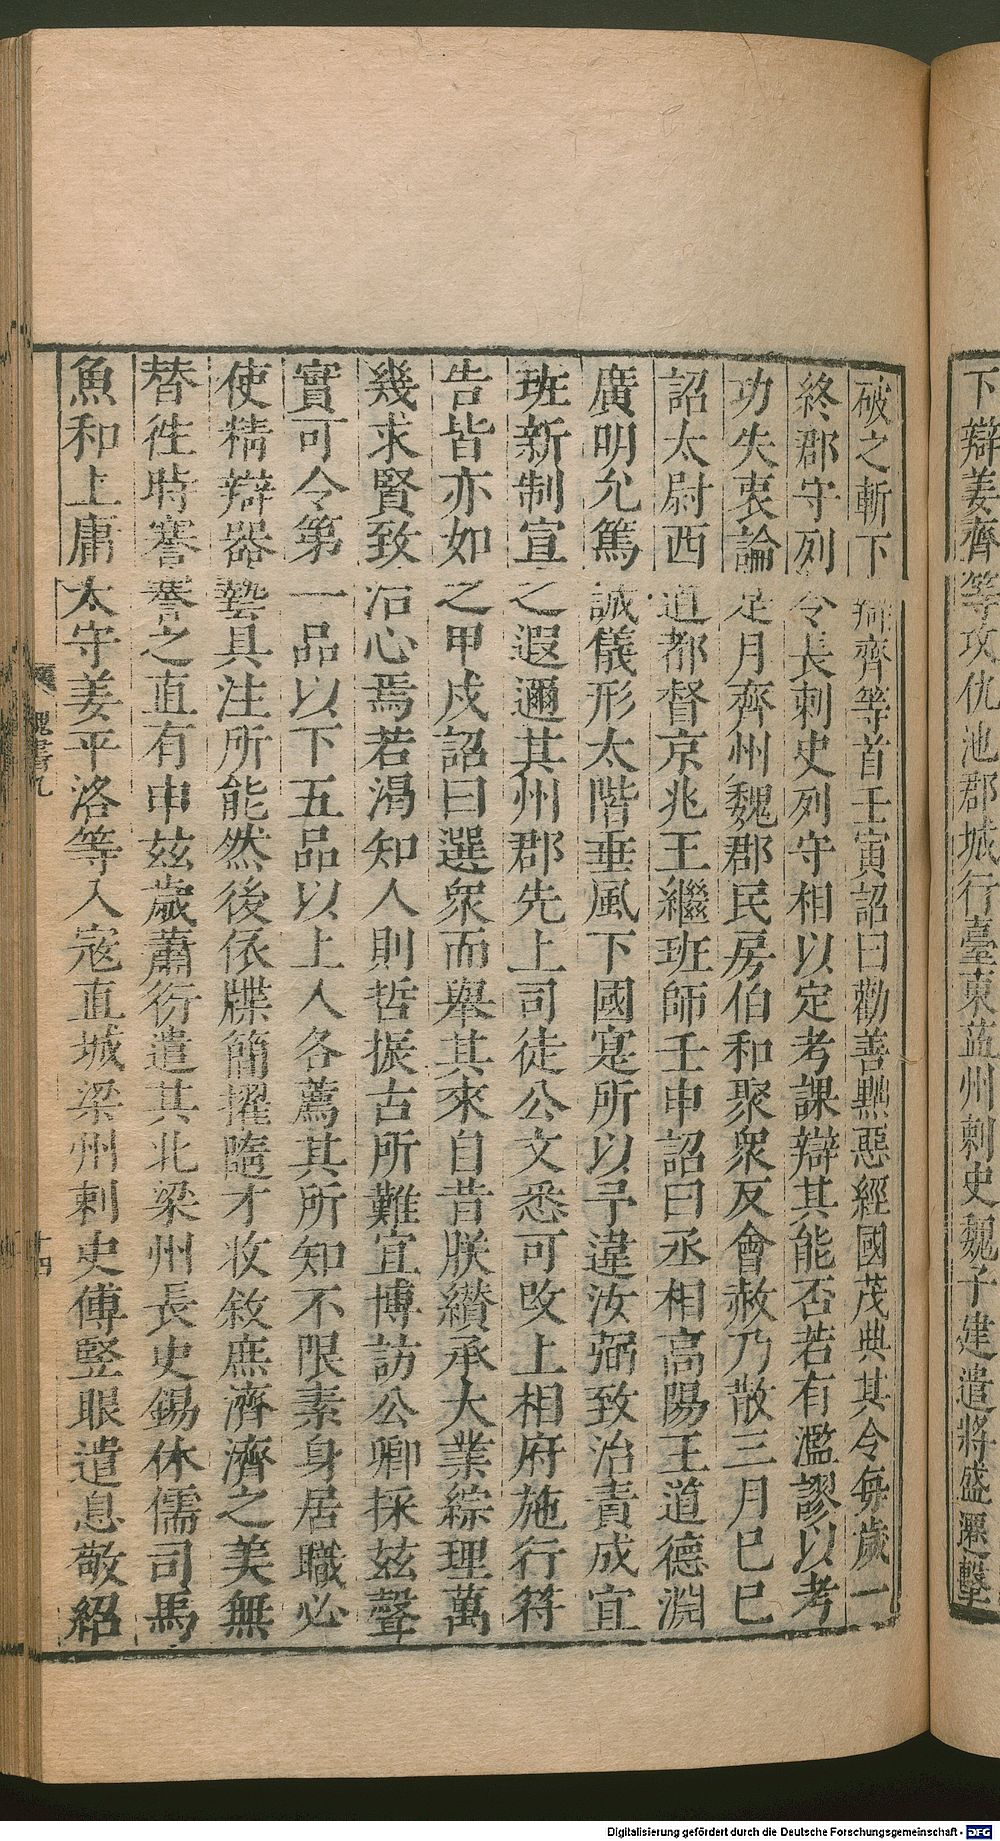 下辯姜齊等攻仇池郡城行臺東益州刺史魏子建遣將盛遷擊
破之斬下辯齊等首壬寅詔曰勸善黜惡經國茂典其令每歲一
終郡守列令長刺史列守相以定考課辯其能否若有濫謬以考
功失衷論是月齊州魏郡民房伯和聚衆反會赦乃散三月巳巳
詔太尉西道都督京兆王繼班師壬申詔曰丞相高陽王道德淵
廣明允篤誠儀形太階垂風下國寔所以予違汝弼致治責成宜
班新制宣之遐邇其州郡先上司徒公文悉可改上相府施行符
告皆亦如之甲戌詔曰選衆而舉其來自昔朕纘承大業綜理萬
幾求賢致治心焉若渴知人則哲振古所難宜博訪公卿採茲聲
實可令第一品以下五品以上人各薦其所知不限素身居職必
使精辯器藝具注所能然後依牒簡擢隨才收敘庶濟濟之美無
替徃時謇謇之直有申茲歲蕭衍遣其北梁州長史錫休儒司馬
魚和上庸太守姜平洛等入寇直城梁州刺史傅竪眼遣息敬紹
魏書九
十四
Digitalisierung gefördert durch die Deutsche Forschungsgemeinschaft - DFG